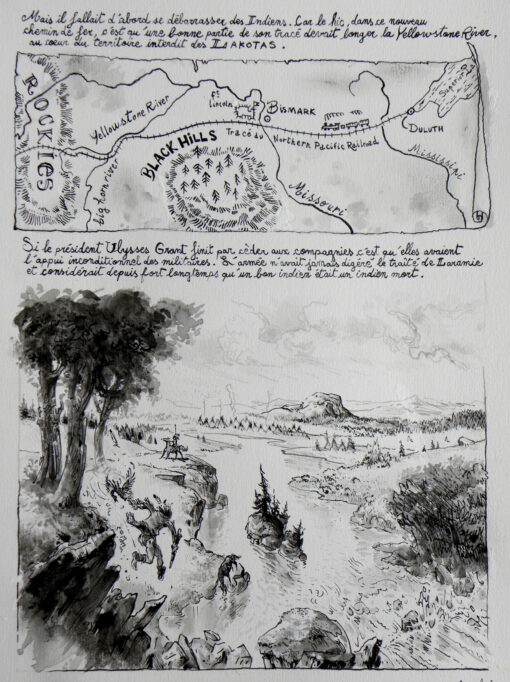 Mais il fallait d'abord se débarrasser des Indiens. Car le hic, dans ce nouveau
chemin de fer, c'est qu'une bonne partie de son tracé devait longer la Yellowstone River,
au cœur du territoire interdit des LAKOTAS.
ROCKIES
Yellowstone River
big horn river
Ft Lincoln
BISMARK
BLACK HILLS
Tracé du Northern Pacific Railroad
Missouri
Superior
DULUTH
Mississipi
Si le président Ulysses Grant finit par céder aux compagnies c'est qu'elles avaient
l'appui inconditionnel des militaires. L'armée n'avait jamais digéré le traité de Laramie
et considérait depuis fort longtemps qu'un bon indien était un indien mort.